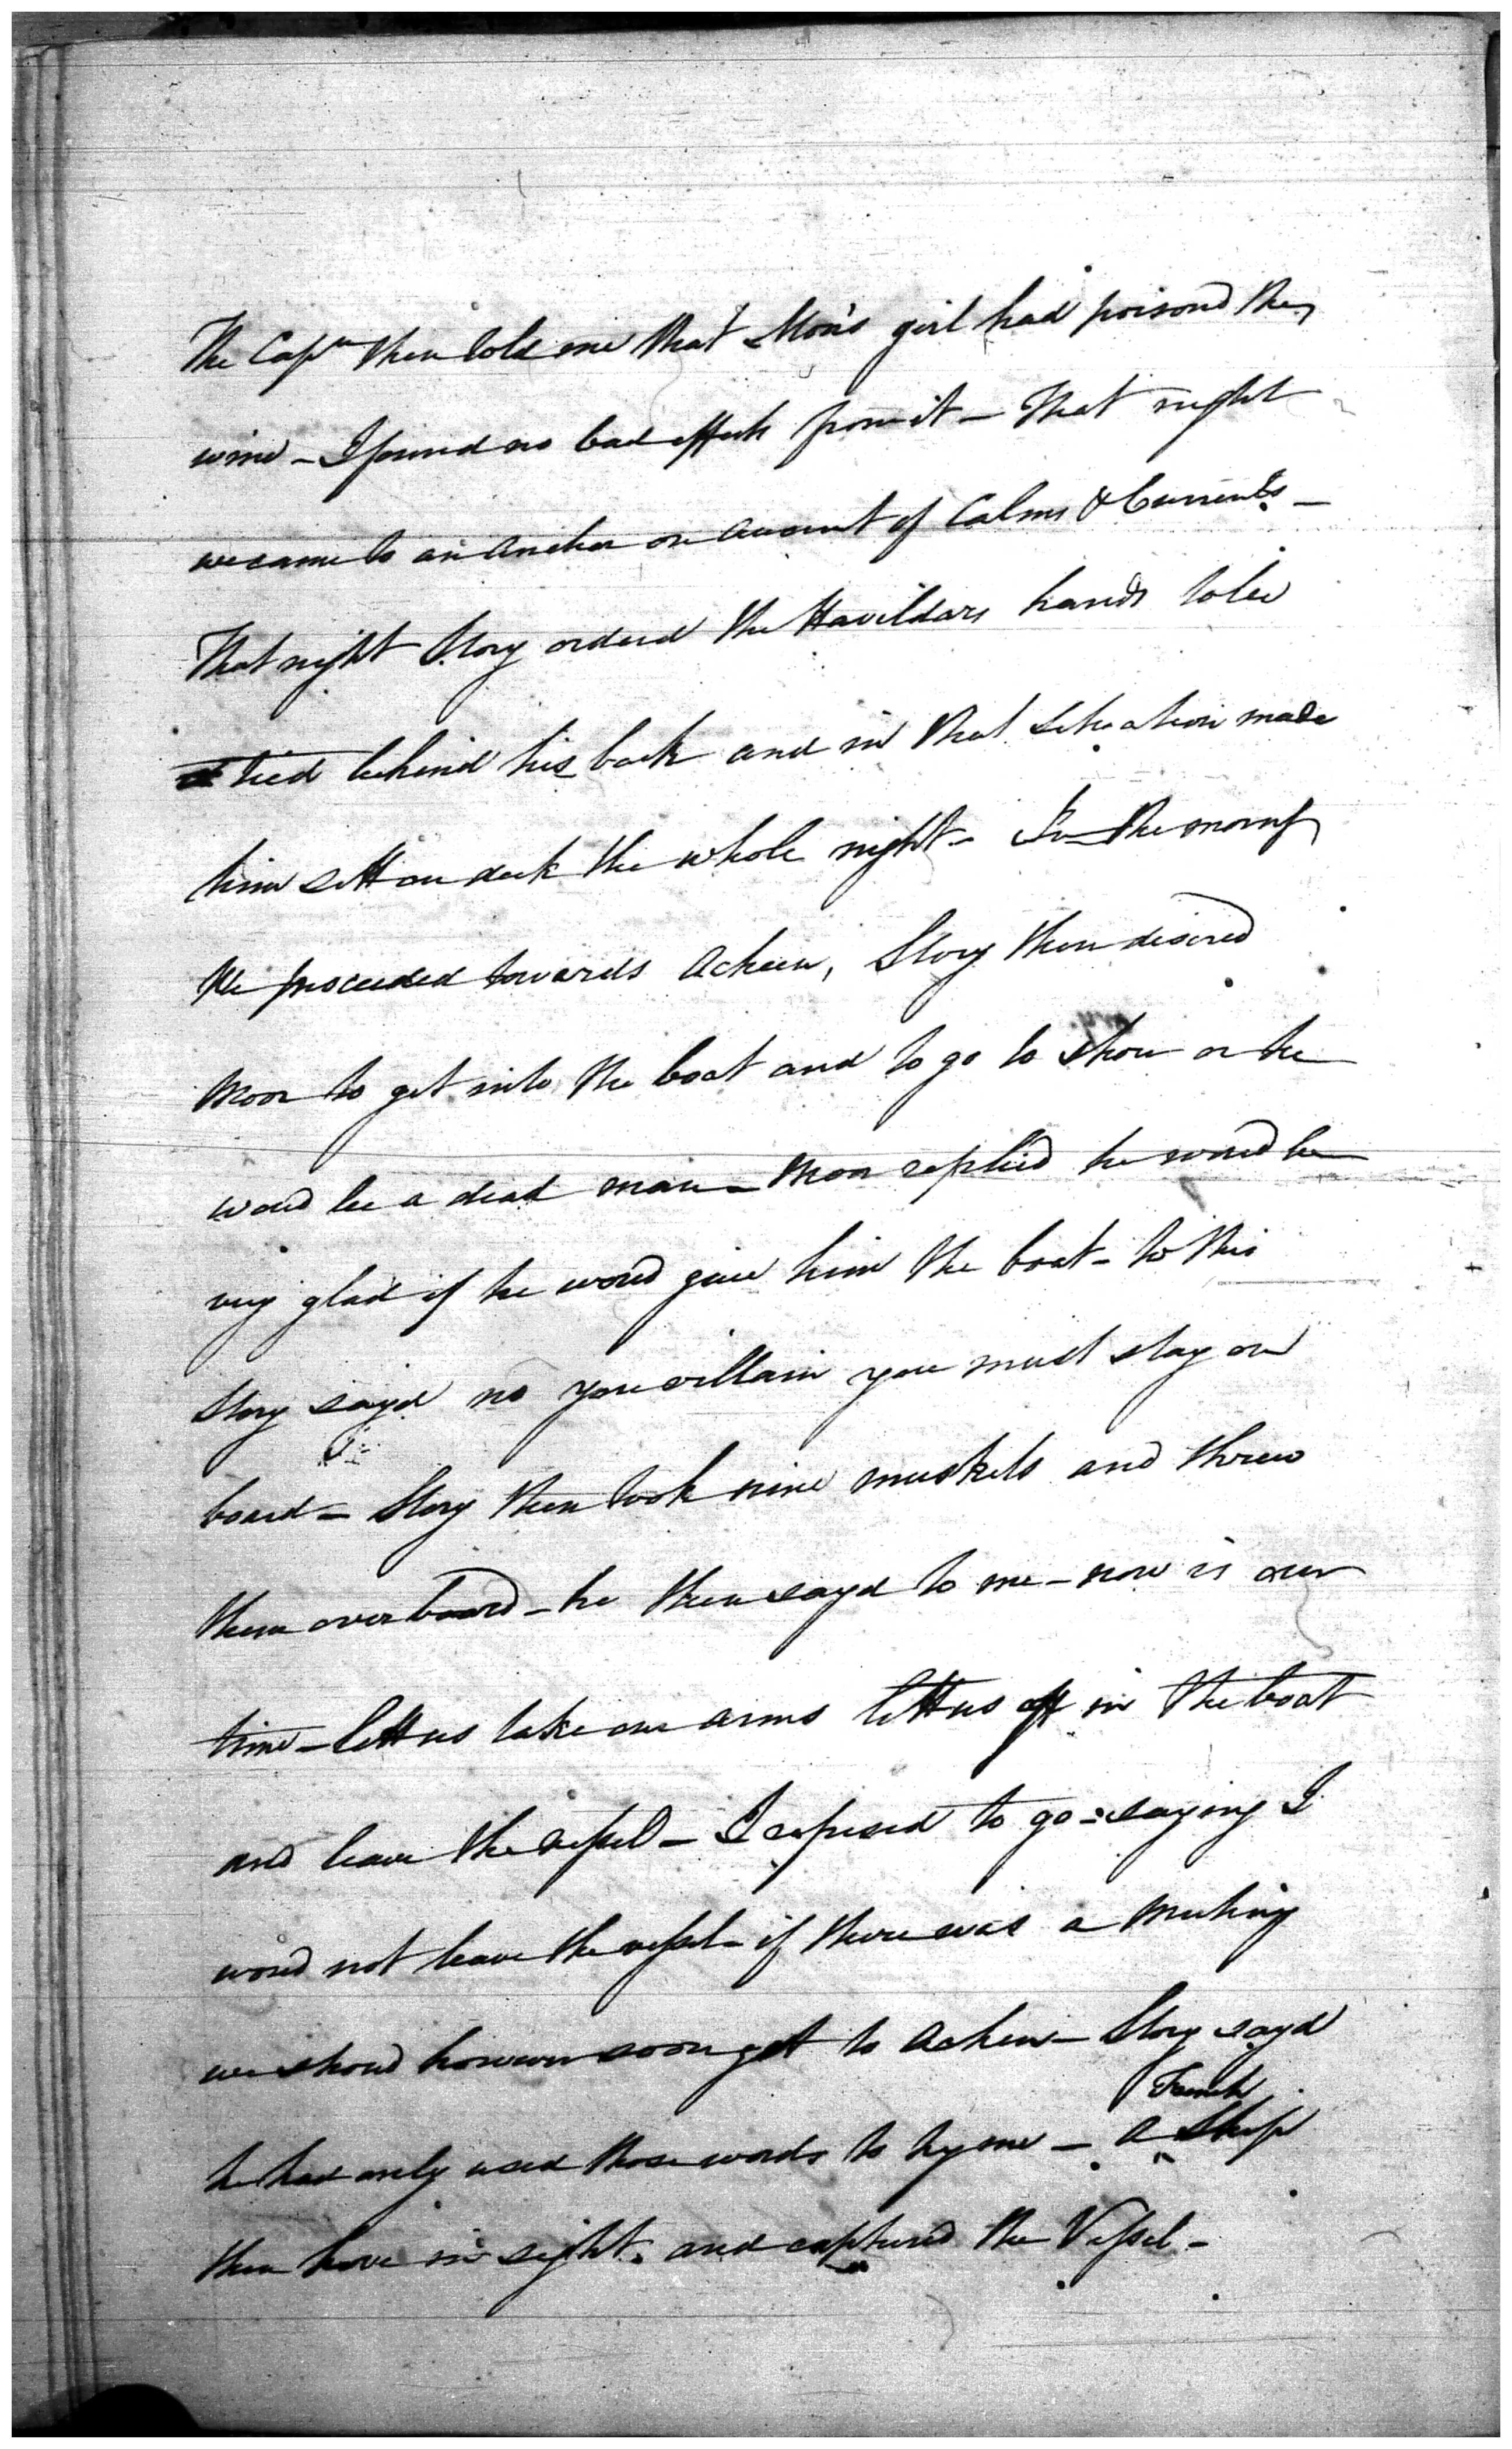 The Capn then told me that Mon's girl had poisond the
wine - I found no bad effects from it - That night
we came to an anchor on account of Calms & Currents -
That night Story orderd the Havildars hands to be
tied behind his back and in that situation made
him sett on deck the whole night - In the morng
We proceeded towards Acheen, Story then desired
Moon to get into the boat and to go to shore or he
woud be a dead man - Moon replied he woud be
very glad if he woud give him the boat - to this
Story sayd no you villain you must stay on
board - Story then took nine muskets and threw
them over board - he then sayd to me - now is our
time - lett us take our arms lett us off in the boat
and leave the vessel - I refused to go - saying I
woud not leave the vessel - if there was a mutiny
we shoud however soon get to Acheen - Story sayd
he had only used those words to try me - A French Ship
then hove in sight. and captured the Vessel -